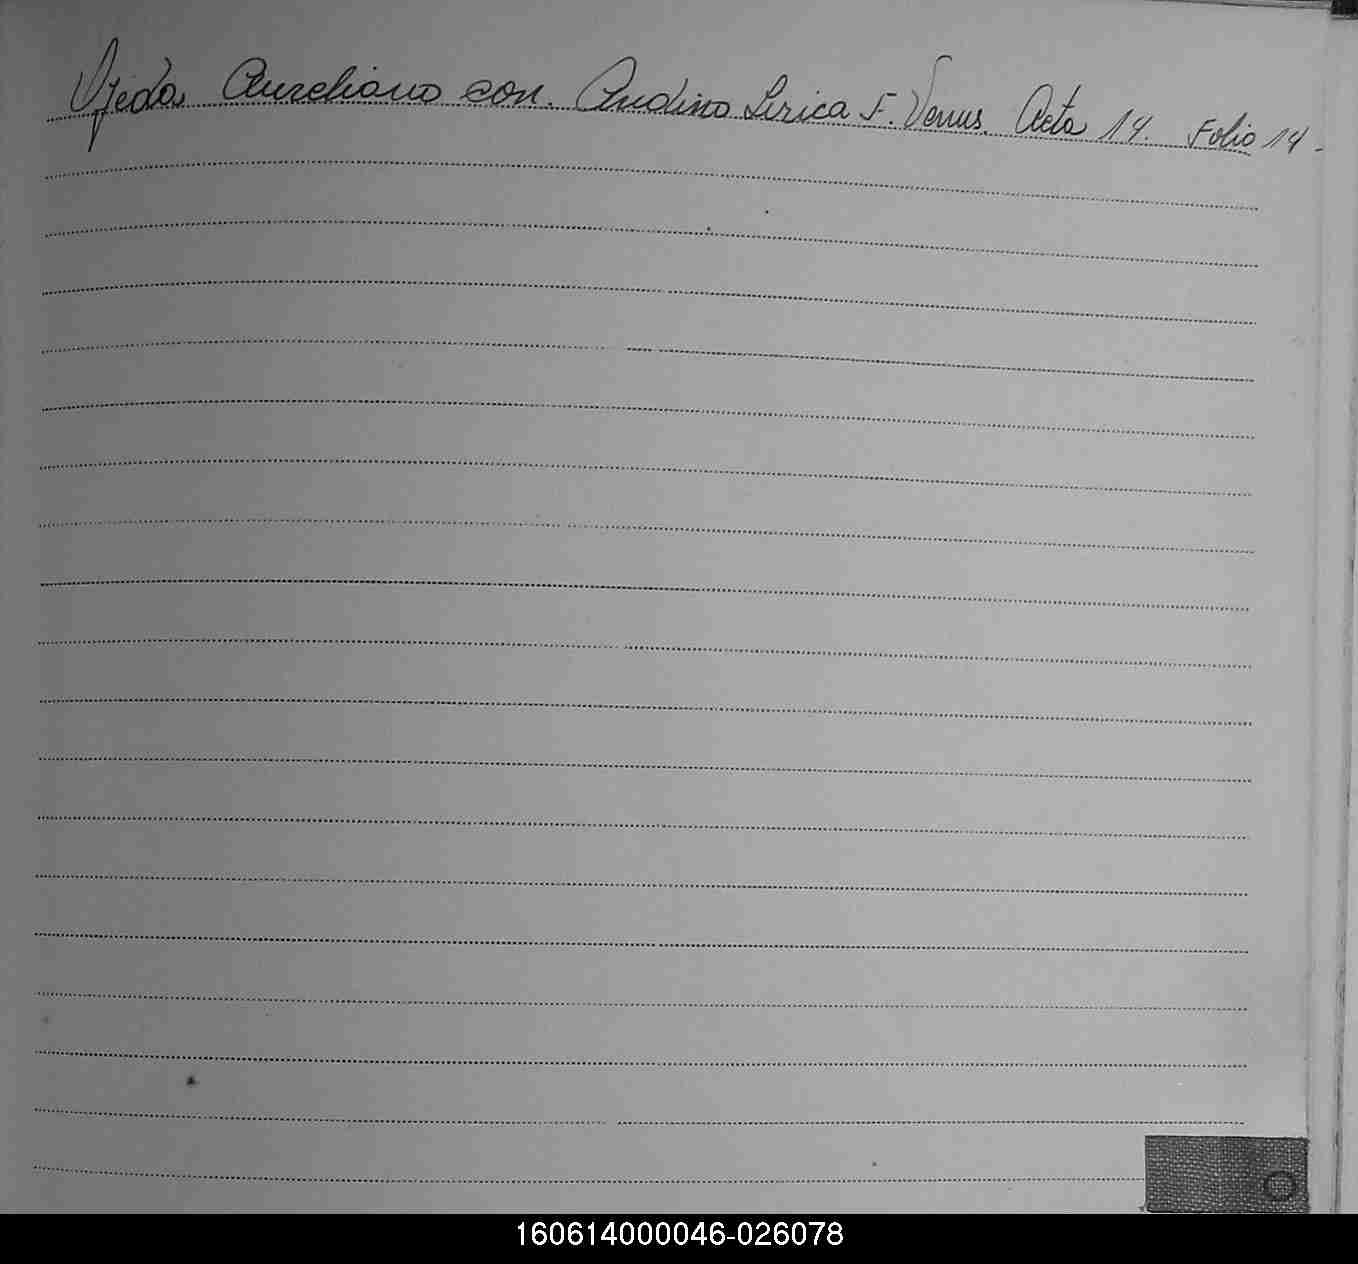 Ojeda Aureliano con. Andino Lirica F. Venus. Acta 14. Folio 14.
O
160614000046-026078